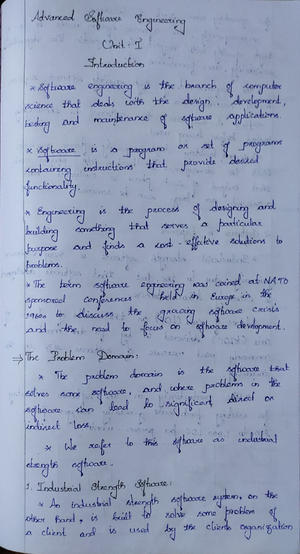 Advanced Software Engineering
Unit - I
Introduction
* Software engineering is the branch of computer
science that deals with the design, development,
testing and maintenance of software applications.
* Software is a program or set of programs
containing instructions that provide desired
functionality.
* Engineering is the process of designing and
building something that serves a particular
purpose and finds a cost-effective solutions to
problems.
* The term software engineering was coined at NATO
sponsored conferences held in Europe in the
1960s to discuss the growing software crisis
and the need to focus on software development.
⇒ The Problem Domain:
* The problem domain is the software that
solves some software, and where problems in the
software can lead to significant direct or
indirect loss.
* We refer to this software as industrial
strength software.
1. Industrial Strength Software:
* An industrial strength software system, on the
other hand, is built to solve some problem of
a client and is used by the clients organization